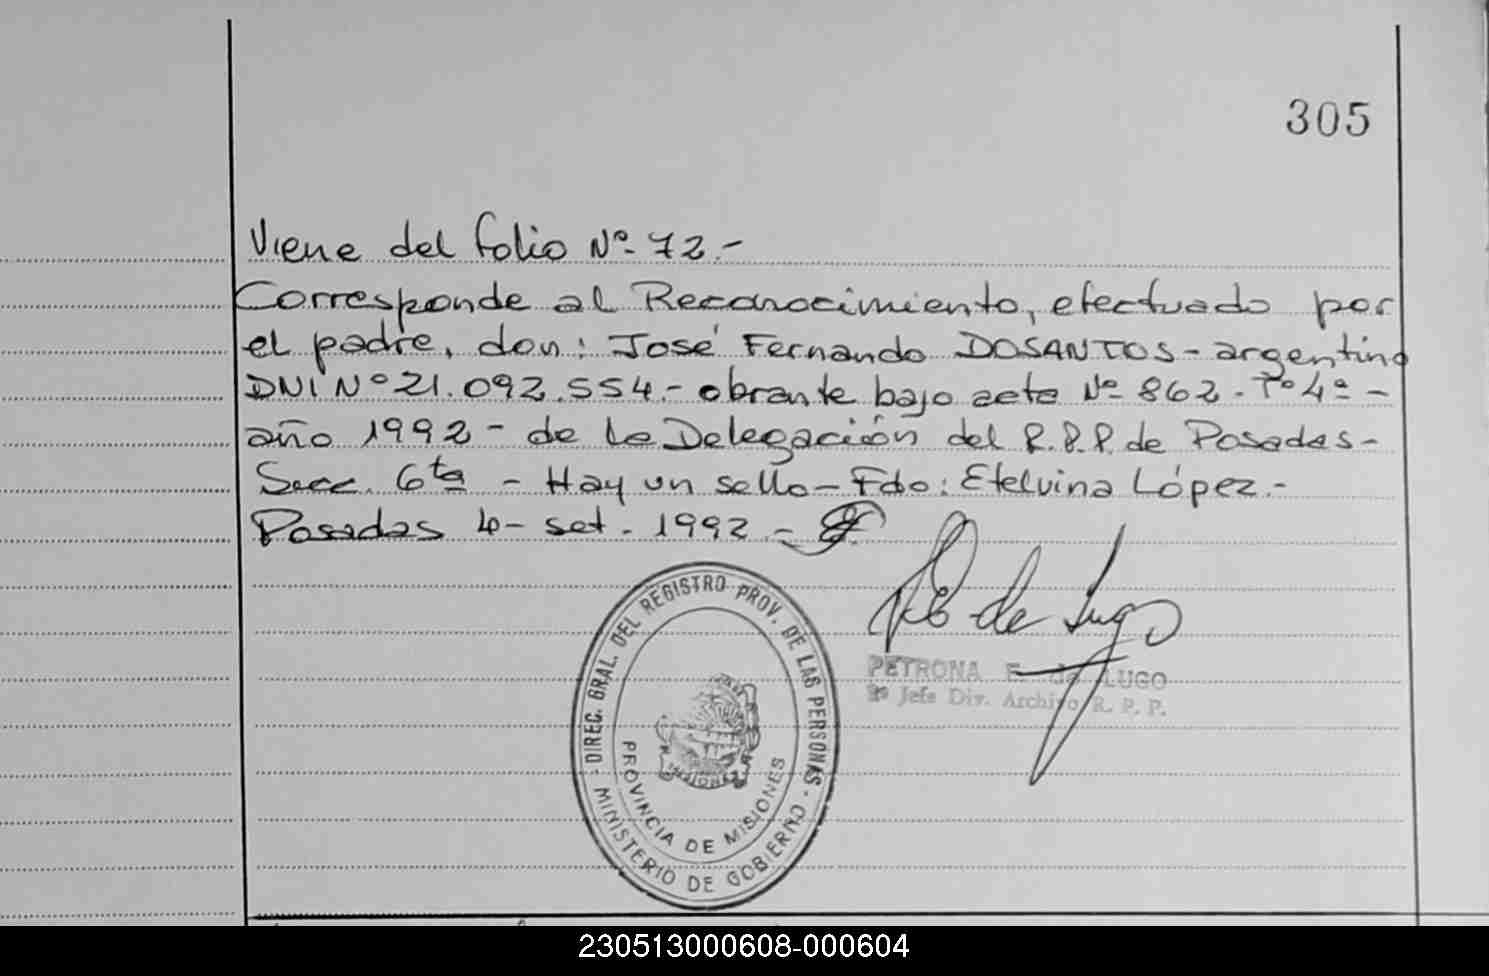 305
Viene del folio Nº 72.-
Corresponde al Reconocimiento, efectuado por
el padre, don: José Fernando DOSANTOS - argentino
DNI Nº 21.092.554.- obrante bajo acta Nº 862 - Tº 4º -
año 1992 - de la Delegación del R.P.P. de Posadas -
Secc. 6ta - Hay un sello - Fdo: Etelvina López.-
Posadas 4 - set. 1992 -
de Lugo
PETRONA F. de LUGO
Jefe Div. Archivo R. P. P.
- DIREC. GRAL. DEL REGISTRO PROV. DE LAS PERSONAS -
MINISTERIO DE GOBIERNO
PROVINCIA DE MISIONES
MISIONES
230513000608-000604